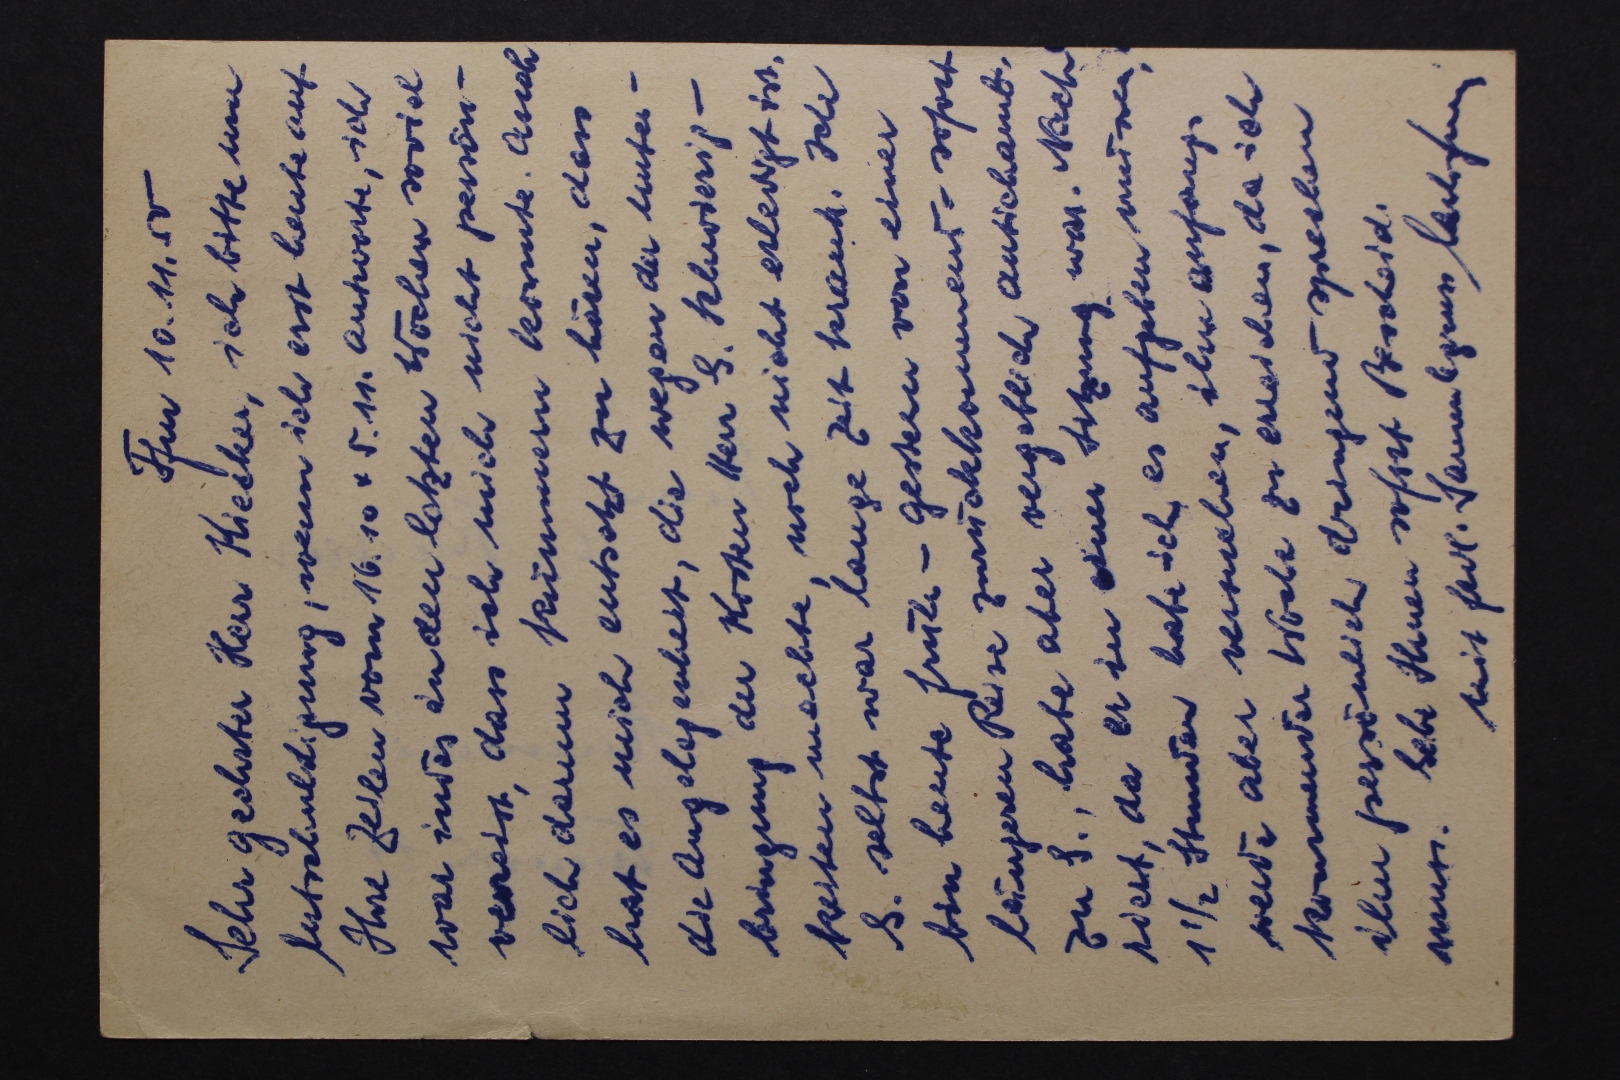 Ffm 10.11.50
Sehr geehrter Herr Kiecker, ich bitte um
Entschuldigung, wenn ich erst heute auf
Ihre Zeilen vom 16.10 + 5.11. antworte, ich
war indes in den letzten Wochen soviel
verreist, dass ich mich nicht persön-
lich darum kümmern konnte. Auch
hat es mich entsetzt zu hören, dass
die Angelegenheit, die wegen der Unter-
bringung der Kosten Herr S. Schwierig-
keiten machte, noch nicht erledigt ist.
S. selbst war lange Zeit krank. Ich
bin heute früh - gestern von einer
längeren Reise zurückkommend - sofort
zu S., habe aber vergeblich antichamb-
riert, da er in einer Sitzung war. Nach
1 1/2 Stunden habe ich es aufgeben müssen,
werde aber versuchen, ihn anfangs
kommender Woche zu erreichen, da ich
ihn persönlich dringend sprechen
muss. Gebe Ihnen sofort Bescheid.
mit frdl. Sammlergruss